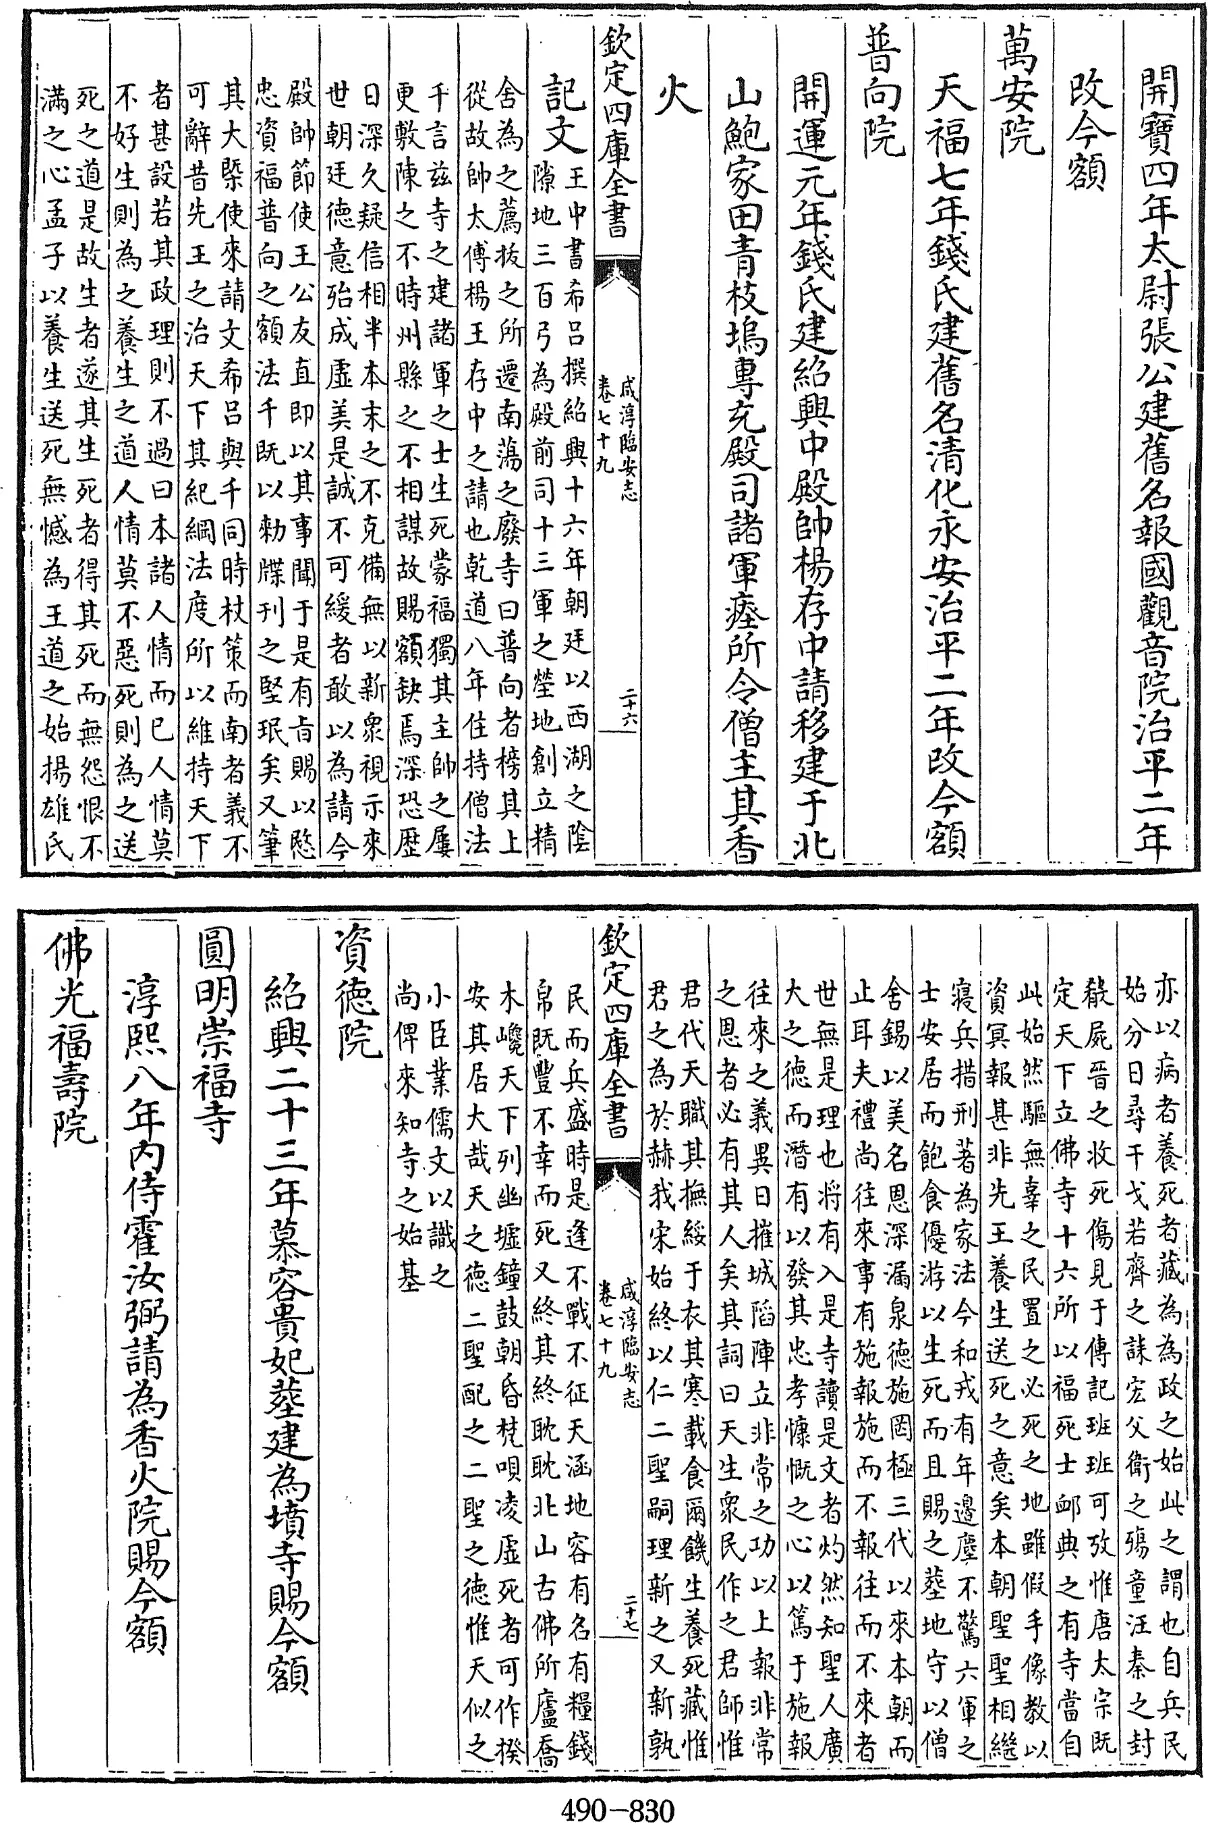 開寶四年太尉張公建舊名報國觀音院治平二年
改今額
萬安院
天福七年錢氏建舊名清化永安治平二年改今額
普向院
開運元年錢氏建紹興中殿帥楊存中請移建于北
山鮑家田青枝塢專充殿司諸軍瘞所令僧主其香
火
記文
王中書希呂撰紹興十六年朝廷以西湖之陰
隙地三百弓為殿前司十三軍之塋地創立精
欽定四庫全書
咸淳臨安志
卷七十九
二十六
舍為之薦拔之所遷南蕩之廢寺曰普向者榜其上
從故帥太傅楊王存中之請也乾道八年住持僧法
千言兹寺之建諸軍之士生死蒙福獨其主帥之屢
更敷陳之不時州縣之不相謀故賜額缺焉深恐歴
日深久疑信相半本末之不克備無以新衆視示來
世朝廷德意殆成虚美是誠不可緩者敢以為請今
殿帥節使王公友直即以其事聞于是有旨賜以愍
忠資福普向之額法千既以勅牒刊之堅珉矣又筆
其大槩使來請文希呂與千同時杖策而南者義不
可辭昔先王之治天下其紀綱法度所以維持天下
者甚設若其政理則不過曰本諸人情而已人情莫
不好生則為之養生之道人情莫不惡死則為之送
死之道是故生者遂其生死者得其死而無怨恨不
滿之心孟子以養生送死無憾為王道之始揚雄氏
亦以病者養死者藏為為政之始此之謂也自兵民
始分日尋干戈若齊之誅宏父衛之殤童汪秦之封
殽屍晉之收死傷見于傳記班班可攷惟唐太宗既
定天下立佛寺十六所以福死士卹典之有寺當自
此始然驅無辜之民置之必死之地雖假手像教以
資冥報甚非先王養生送死之意矣本朝聖聖相繼
寢兵措刑著為家法今和戎有年邊塵不驚六軍之
士安居而飽食優游以生死而且賜之塟地守以僧
舍錫以美名恩深漏泉德施罔極三代以來本朝而
止耳夫禮尚往來事有施報施而不報往而不來者
世無是理也將有入是寺讀是文者灼然知聖人廣
大之德而潛有以發其忠孝慷慨之心以篤于施報
往來之義異日摧城䧟陣立非常之功以上報非常
之恩者必有其人矣其詞曰天生衆民作之君師惟
君代天職其撫綏于衣其寒載食爾饑生養死藏惟
君之為於赫我宋始終以仁二聖嗣理新之又新孰
欽定四庫全書
咸淳臨安志
卷七十九
二十七
民而兵盛時是逢不戰不征天涵地容有名有糧錢
帛既豐不幸而死又終其終耽耽北山古佛所廬喬
木巉天下列幽墟鐘鼓朝昏梵唄凌虚死者可作揆
安其居大哉天之德二聖配之二聖之德惟天似之
小臣業儒文以識之
尚俾來知寺之始基
資德院
紹興二十三年慕容貴妃塟建為墳寺賜今額
圓明崇福寺
淳熙八年内侍霍汝弼請為香火院賜今額
佛光福壽院
490-830